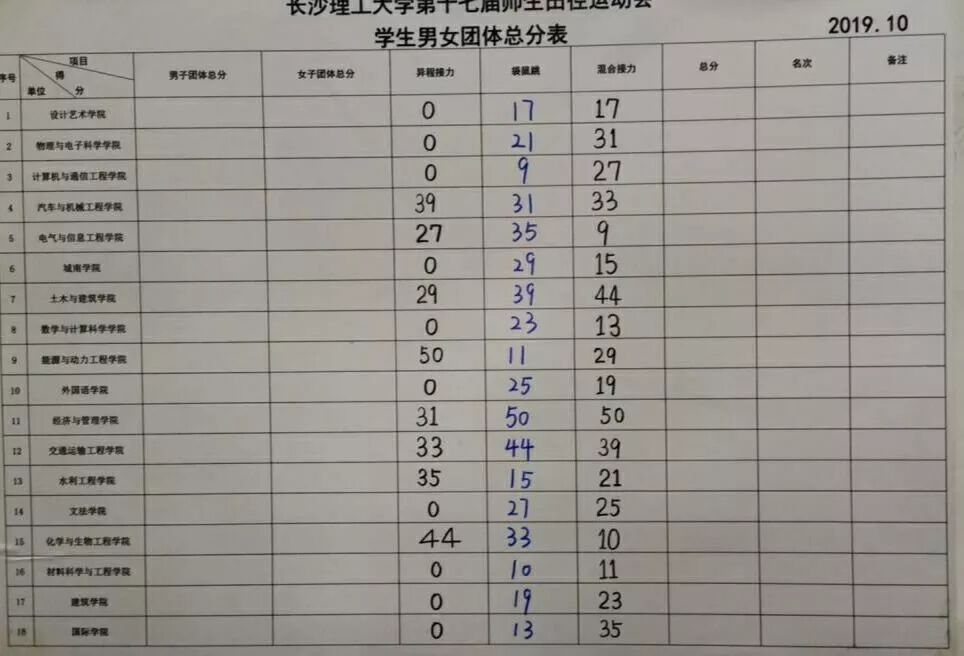 长沙理工大学第十七届师生田径运动会
学生男女团体总分表
2019.10
序号 项目 得分 单位 男子团体总分 女子团体总分 异程接力 袋鼠跳 混合接力 总分 名次 备注
1 设计艺术学院 0 17 17
2 物理与电子科学学院 0 21 31
3 计算机与通信工程学院 0 9 27
4 汽车与机械工程学院 39 31 33
5 电气与信息工程学院 27 35 9
6 城南学院 0 29 15
7 土木与建筑学院 29 39 44
8 数学与计算科学学院 0 23 13
9 能源与动力工程学院 50 11 29
10 外国语学院 0 25 19
11 经济与管理学院 31 50 50
12 交通运输工程学院 33 44 39
13 水利工程学院 35 15 21
14 文法学院 0 27 25
15 化学与生物工程学院 44 33 10
16 材料科学与工程学院 0 10 11
17 建筑学院 0 19 23
18 国际学院 0 13 35